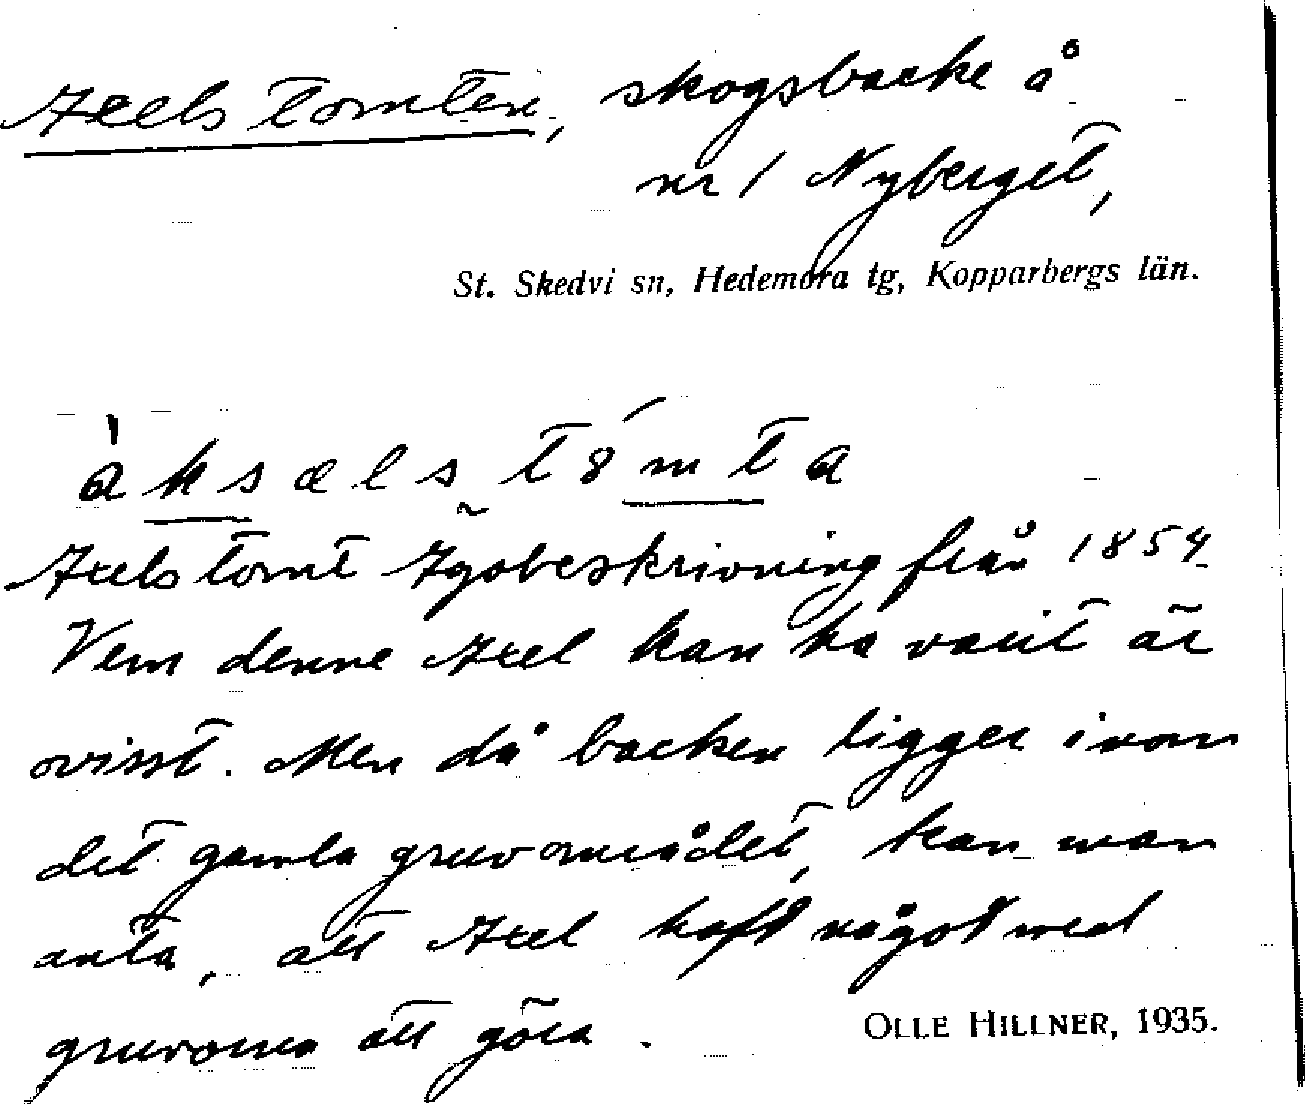 Axelstomten, skogsbacke å
nr 1 Nyberget,
St. Skedvi sn, Hedemora tg, Kopparbergs län.
àksælstómta
Axelstomt Ägobeskrivning från 1854
Vem denne Axel kan ha varit är
ovisst. Men då backen ligger inom
det gamla gruvområdet, kan man
anta, att Axel haft något med
gruvorna att göra.
OLLE HILLNER, 1935.